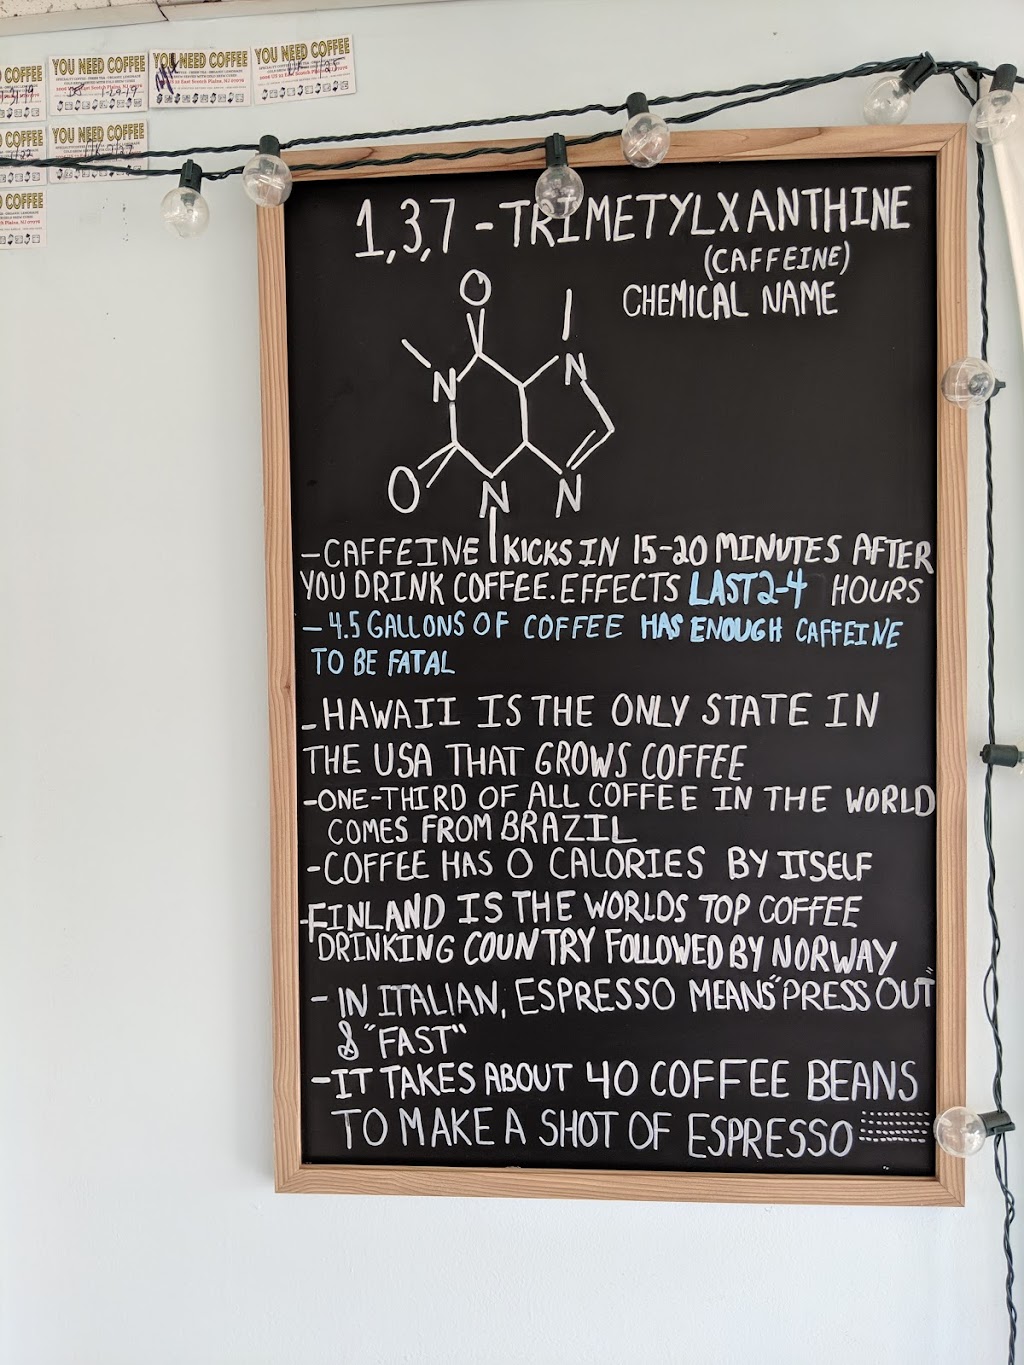 COFFEE
YOU NEED COFFEE
YOU NEED COFFEE
YOU NEED COFFEE
COFFEE
YOU NEED COFFEE
COFFEE
1,3,7-TRIMETYLXANTHINE
(CAFFEINE)
CHEMICAL NAME
O
N
N
O
N
N
-CAFFEINE KICKS IN 15-20 MINUTES AFTER
YOU DRINK COFFEE. EFFECTS LAST 2-4 HOURS
- 4.5 GALLONS OF COFFEE HAS ENOUGH CAFFEINE
TO BE FATAL
- HAWAII IS THE ONLY STATE IN
THE USA THAT GROWS COFFEE
-ONE-THIRD OF ALL COFFEE IN THE WORLD
COMES FROM BRAZIL
-COFFEE HAS 0 CALORIES BY ITSELF
-FINLAND IS THE WORLDS TOP COFFEE
DRINKING COUNTRY FOLLOWED BY NORWAY
- IN ITALIAN, ESPRESSO MEANS "PRESS OUT"
& "FAST"
-IT TAKES ABOUT 40 COFFEE BEANS
TO MAKE A SHOT OF ESPRESSO